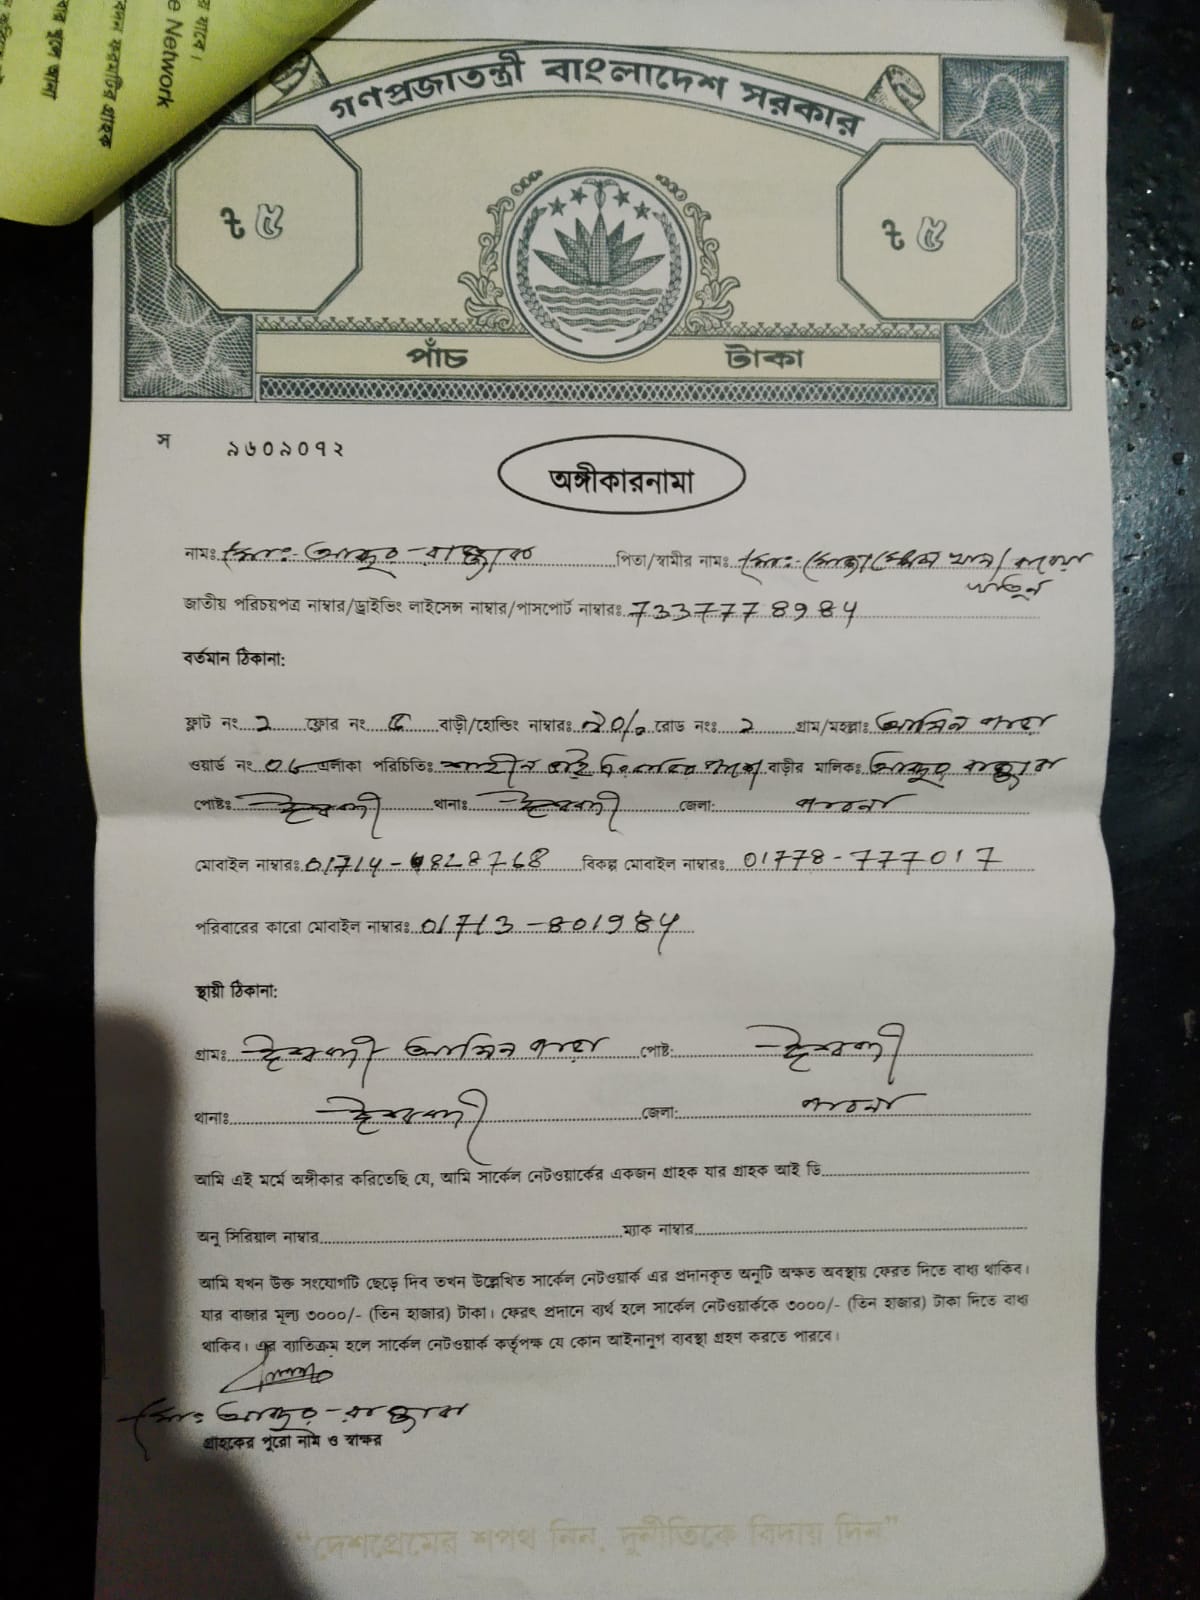 র যাবে।
e Network
গণপ্রজাতন্ত্রী বাংলাদেশ সরকার
৳ ৫ ৳ ৫
পাঁচ টাকা
স ৯৬০৯০৭২
অঙ্গীকারনামা
নামঃ মোঃ আব্দুর রাজ্জাক পিতা/স্বামীর নামঃ মোঃ
খাতুন
জাতীয় পরিচয়পত্র নাম্বার/ড্রাইভিং লাইসেন্স নাম্বার/পাসপোর্ট নাম্বারঃ 7337778984
বর্তমান ঠিকানা:
ফ্লাট নং 2 ফ্লোর নং বাড়ী/হোল্ডিং নাম্বারঃ রোড নংঃ 2 গ্রাম/মহল্লাঃ আমিন পাড়া
ওয়ার্ড নং 06 এলাকা পরিচিতিঃ বাড়ীর মালিকঃ আব্দুর রাজ্জাক
পোষ্টঃ ঈশ্বরদী থানাঃ ঈশ্বরদী জেলা: পাবনা
মোবাইল নাম্বারঃ 01714-828768 বিকল্প মোবাইল নাম্বারঃ 01778-777017
পরিবারের কারো মোবাইল নাম্বারঃ 01713-801984
স্থায়ী ঠিকানা:
গ্রামঃ ঈশ্বরদী আমিন পাড়া পোষ্ট: ঈশ্বরদী
থানাঃ ঈশ্বরদী জেলা: পাবনা
আমি এই মর্মে অঙ্গীকার করিতেছি যে, আমি সার্কেল নেটওয়ার্কের একজন গ্রাহক যার গ্রাহক আই ডি
অনু সিরিয়াল নাম্বার ম্যাক নাম্বার
আমি যখন উক্ত সংযোগটি ছেড়ে দিব তখন উল্লেখিত সার্কেল নেটওয়ার্ক এর প্রদানকৃত অনুটি অক্ষত অবস্থায় ফেরত দিতে বাধ্য থাকিব।
যার বাজার মূল্য ৩০০০/- (তিন হাজার) টাকা। ফেরৎ প্রদানে ব্যর্থ হলে সার্কেল নেটওয়ার্ককে ৩০০০/- (তিন হাজার) টাকা দিতে বাধ্য
থাকিব। এর ব্যতিক্রম হলে সার্কেল নেটওয়ার্ক কর্তৃপক্ষ যে কোন আইনানুগ ব্যবস্থা গ্রহণ করতে পারবে।
মোঃ আব্দুর রাজ্জাক
গ্রাহকের পুরো নাম ও স্বাক্ষর
"দেশপ্রেমের শপথ নিন, দুর্নীতিকে বিদায় দিন"